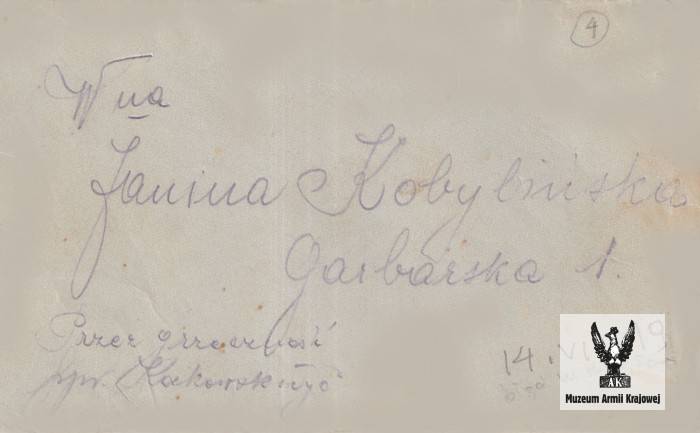 4
Wna
Janina Kobylińska
Garbarska 1.
Przez grzeczność
pp. Kakowskiego
14. VI. 19
AK
Muzeum Armii Krajowej